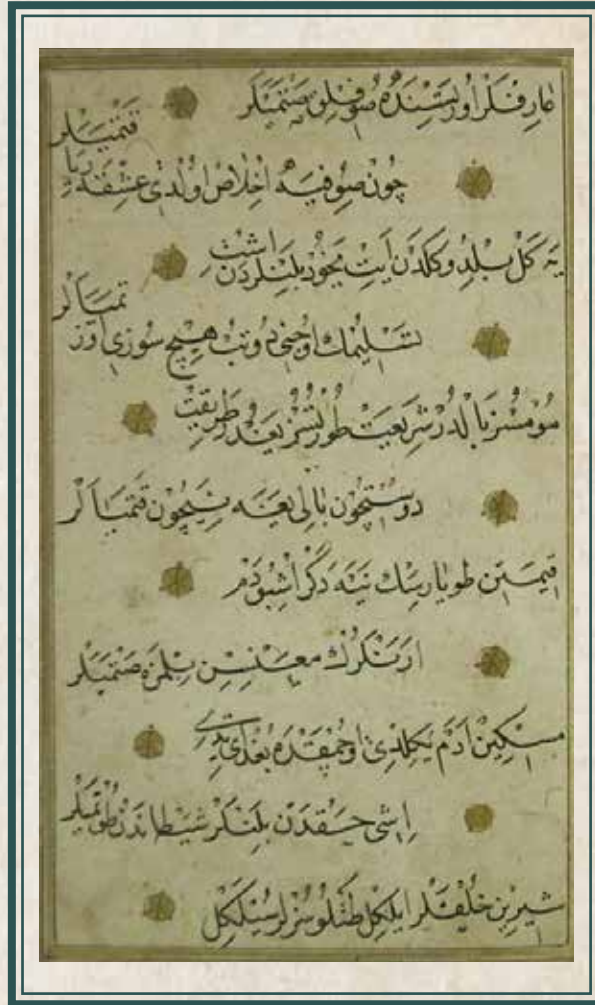 عارفلر اورتسنده صوفلق صتميلر
چون صوفيه اخلاص اولدى عشقه ريا قتميلر
يه كل بلدوكلدن ايت يخود بلنلردن اشت
تسليملك اوجنى دوتب هيچ سوزى اوزتميالر
مومسز بالدر شريعت طورتسز يغدر طريقت
دوستچون بالى يغه نيچون قتميالر
قيمتن طويارسك نيه دكر اشبو دم
ارنلرك معنيسن بلمزه صتميلر
مسكين ادم يكلدى اوچمقده بغداى يدى
اشى حقدن بلنلر شيطاندن طوتميلر
شيرين خلقلر ايلكل طتلو سزلر سيلكل